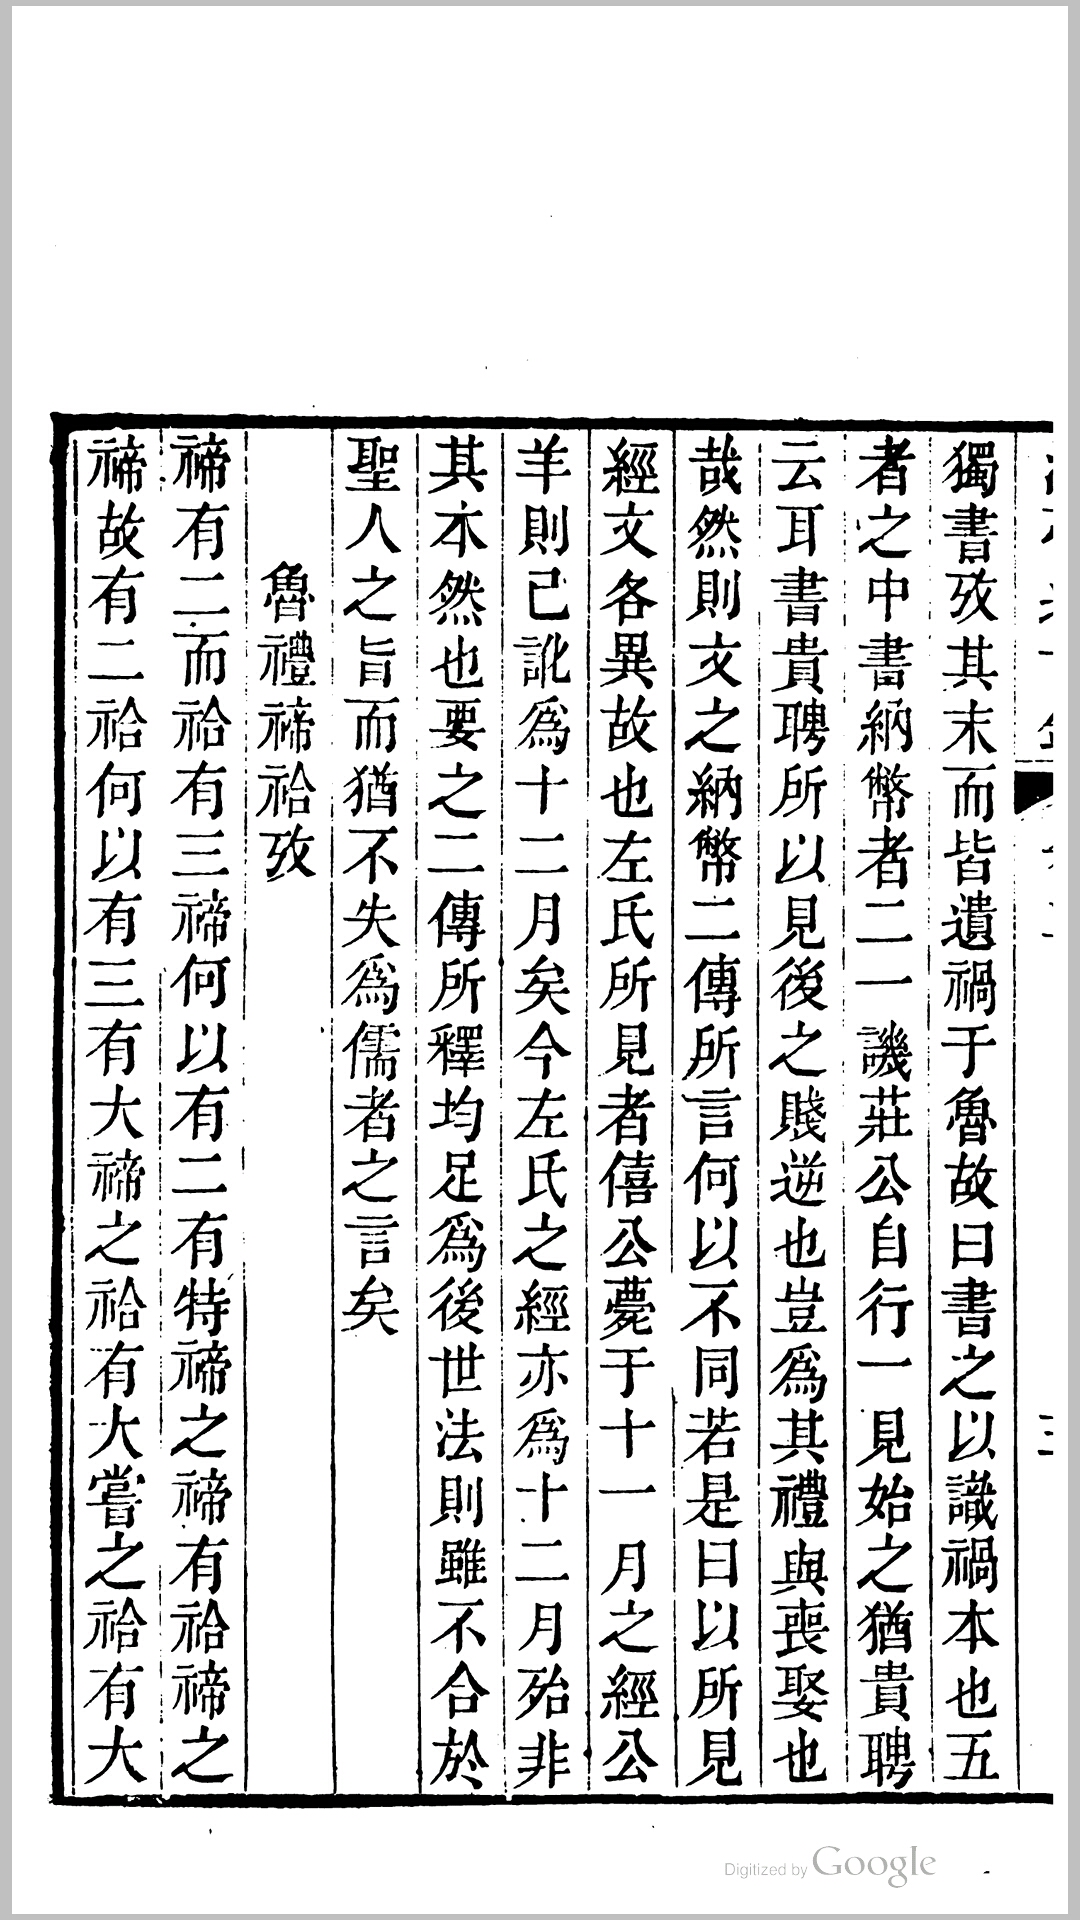 獨書攷其末而皆遺禍于魯故曰書之以識禍本也五
者之中書納幣者二一譏莊公自行一見始之猶貴聘
云耳書貴聘所以見後之賤逆也豈爲其禮與喪娶也
哉然則文之納幣二傳所言何以不同若是曰以所見
經文各異故也左氏所見者僖公薨于十一月之經公
羊則已訛爲十二月矣今左氏之經亦爲十二月殆非
其本然也要之二傳所釋均足爲後世法則雖不合於
聖人之旨而猶不失爲儒者之言矣
魯禮禘祫攷
禘有二而祫有三禘何以有二有特禘之禘有祫禘之
禘故有二祫何以有三有大禘之祫有大嘗之祫有大
Digitized by Google